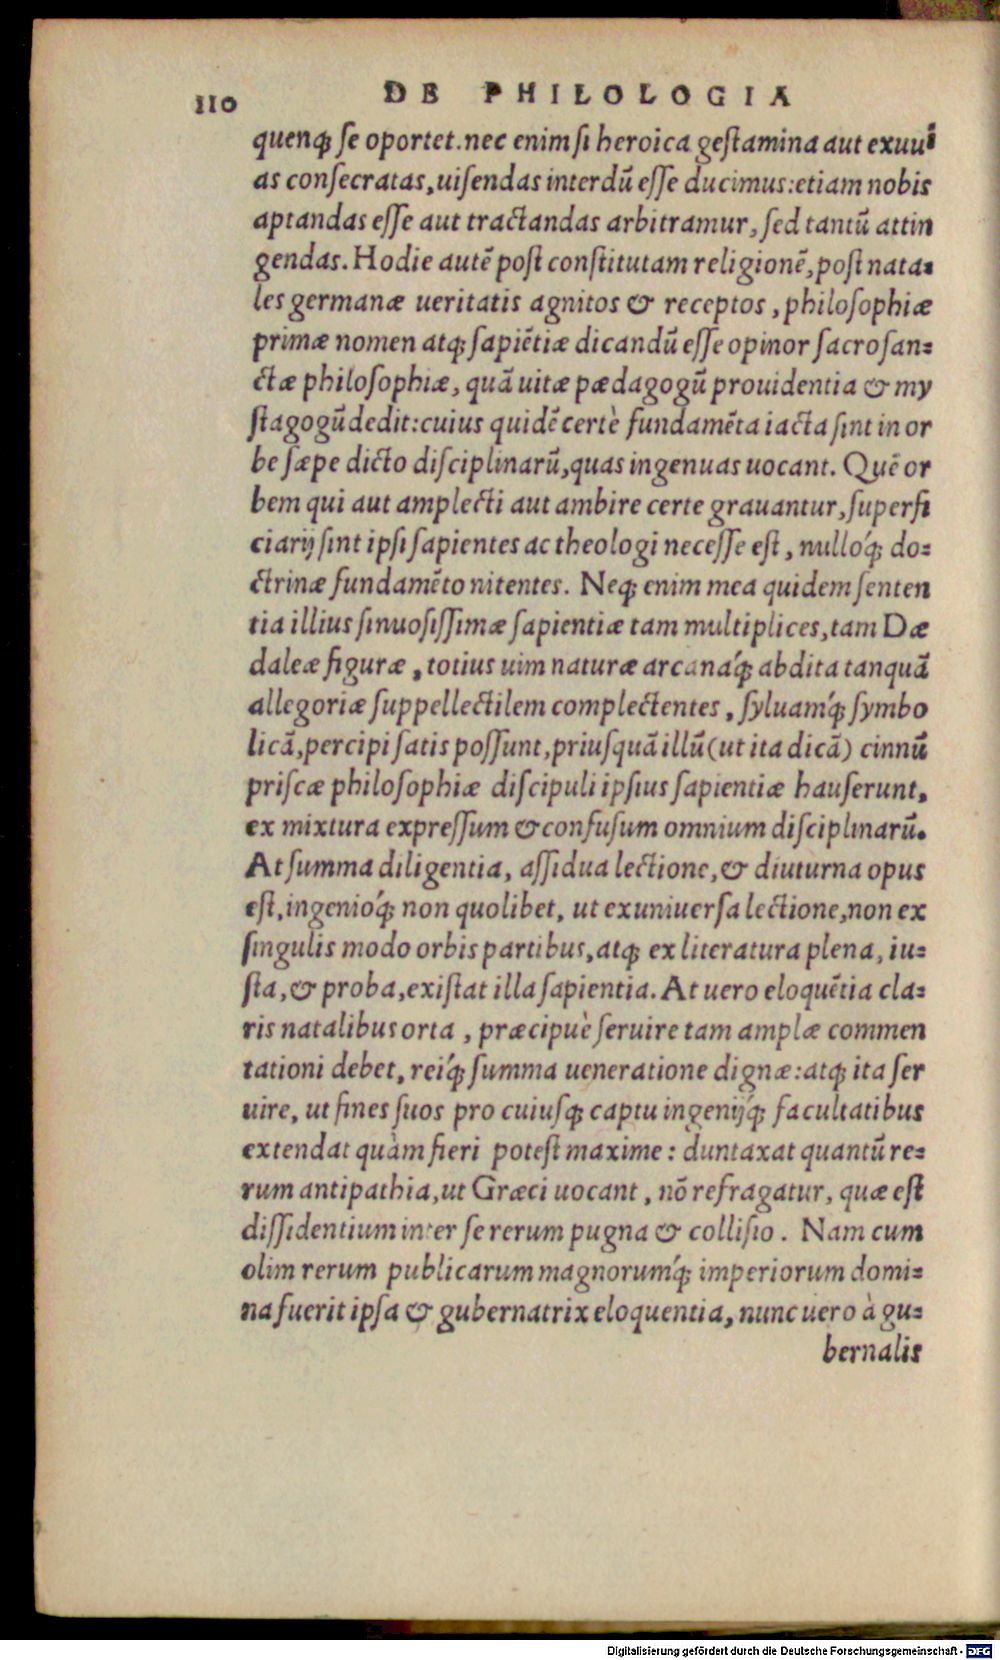 110 DE PHILOLOGIA
quenq́; se oportet. nec enim si heroica gestamina aut exuui
as consecratas, uisendas interdũ esse ducimus: etiam nobis
aptandas esse aut tractandas arbitramur, sed tantũ attin
gendas. Hodie autẽ post constitutam religionẽ, post nata-
les germanæ ueritatis agnitos & receptos, philosophiæ
primæ nomen atq; sapiẽtiæ dicandũ esse opinor sacrosan-
ctæ philosophiæ, quã uitæ pædagogũ prouidentia & my
stagogũ dedit: cuius quidẽ certè fundamẽta iacta sint in or
be sæpe dicto disciplinarũ, quas ingenuas uocant. Quẽ or
bem qui aut amplecti aut ambire certe grauantur, superfi
ciarij sint ipsi sapientes ac theologi necesse est, nulloq́; do-
ctrinæ fundamẽto nitentes. Neq; enim mea quidem senten
tia illius sinuosissimæ sapientiæ tam multiplices, tam Dæ
daleæ figuræ, totius uim naturæ arcanaq́; abdita tanquã
allegoriæ suppellectilem complectentes, syluamq́; symbo
licã, percipi satis possunt, priusquã illũ (ut ita dicã) cinnũ
priscæ philosophiæ discipuli ipsius sapientiæ hauserunt,
ex mixtura expressum & confusum omnium disciplinarũ.
At summa diligentia, assidua lectione, & diuturna opus
est, ingenioq́; non quolibet, ut ex uniuersa lectione, non ex
singulis modo orbis partibus, atq; ex literatura plena, iu-
sta, & proba, existat illa sapientia. At uero eloquẽtia cla-
ris natalibus orta, præcipuè seruire tam amplæ commen
tationi debet, reiq́; summa ueneratione dignæ: atq; ita ser
uire, ut fines suos pro cuiusq; captu ingenijq́; facultatibus
extendat quàm fieri potest maxime: duntaxat quantũ re-
rum antipathia, ut Græci uocant, nõ refragatur, quæ est
dissidentium inter se rerum pugna & collisio. Nam cum
olim rerum publicarum magnorumq́; imperiorum domi-
na fuerit ipsa & gubernatrix eloquentia, nunc uero à gu-
bernalis
Digitalisierung gefördert durch die Deutsche Forschungsgemeinschaft - DFG